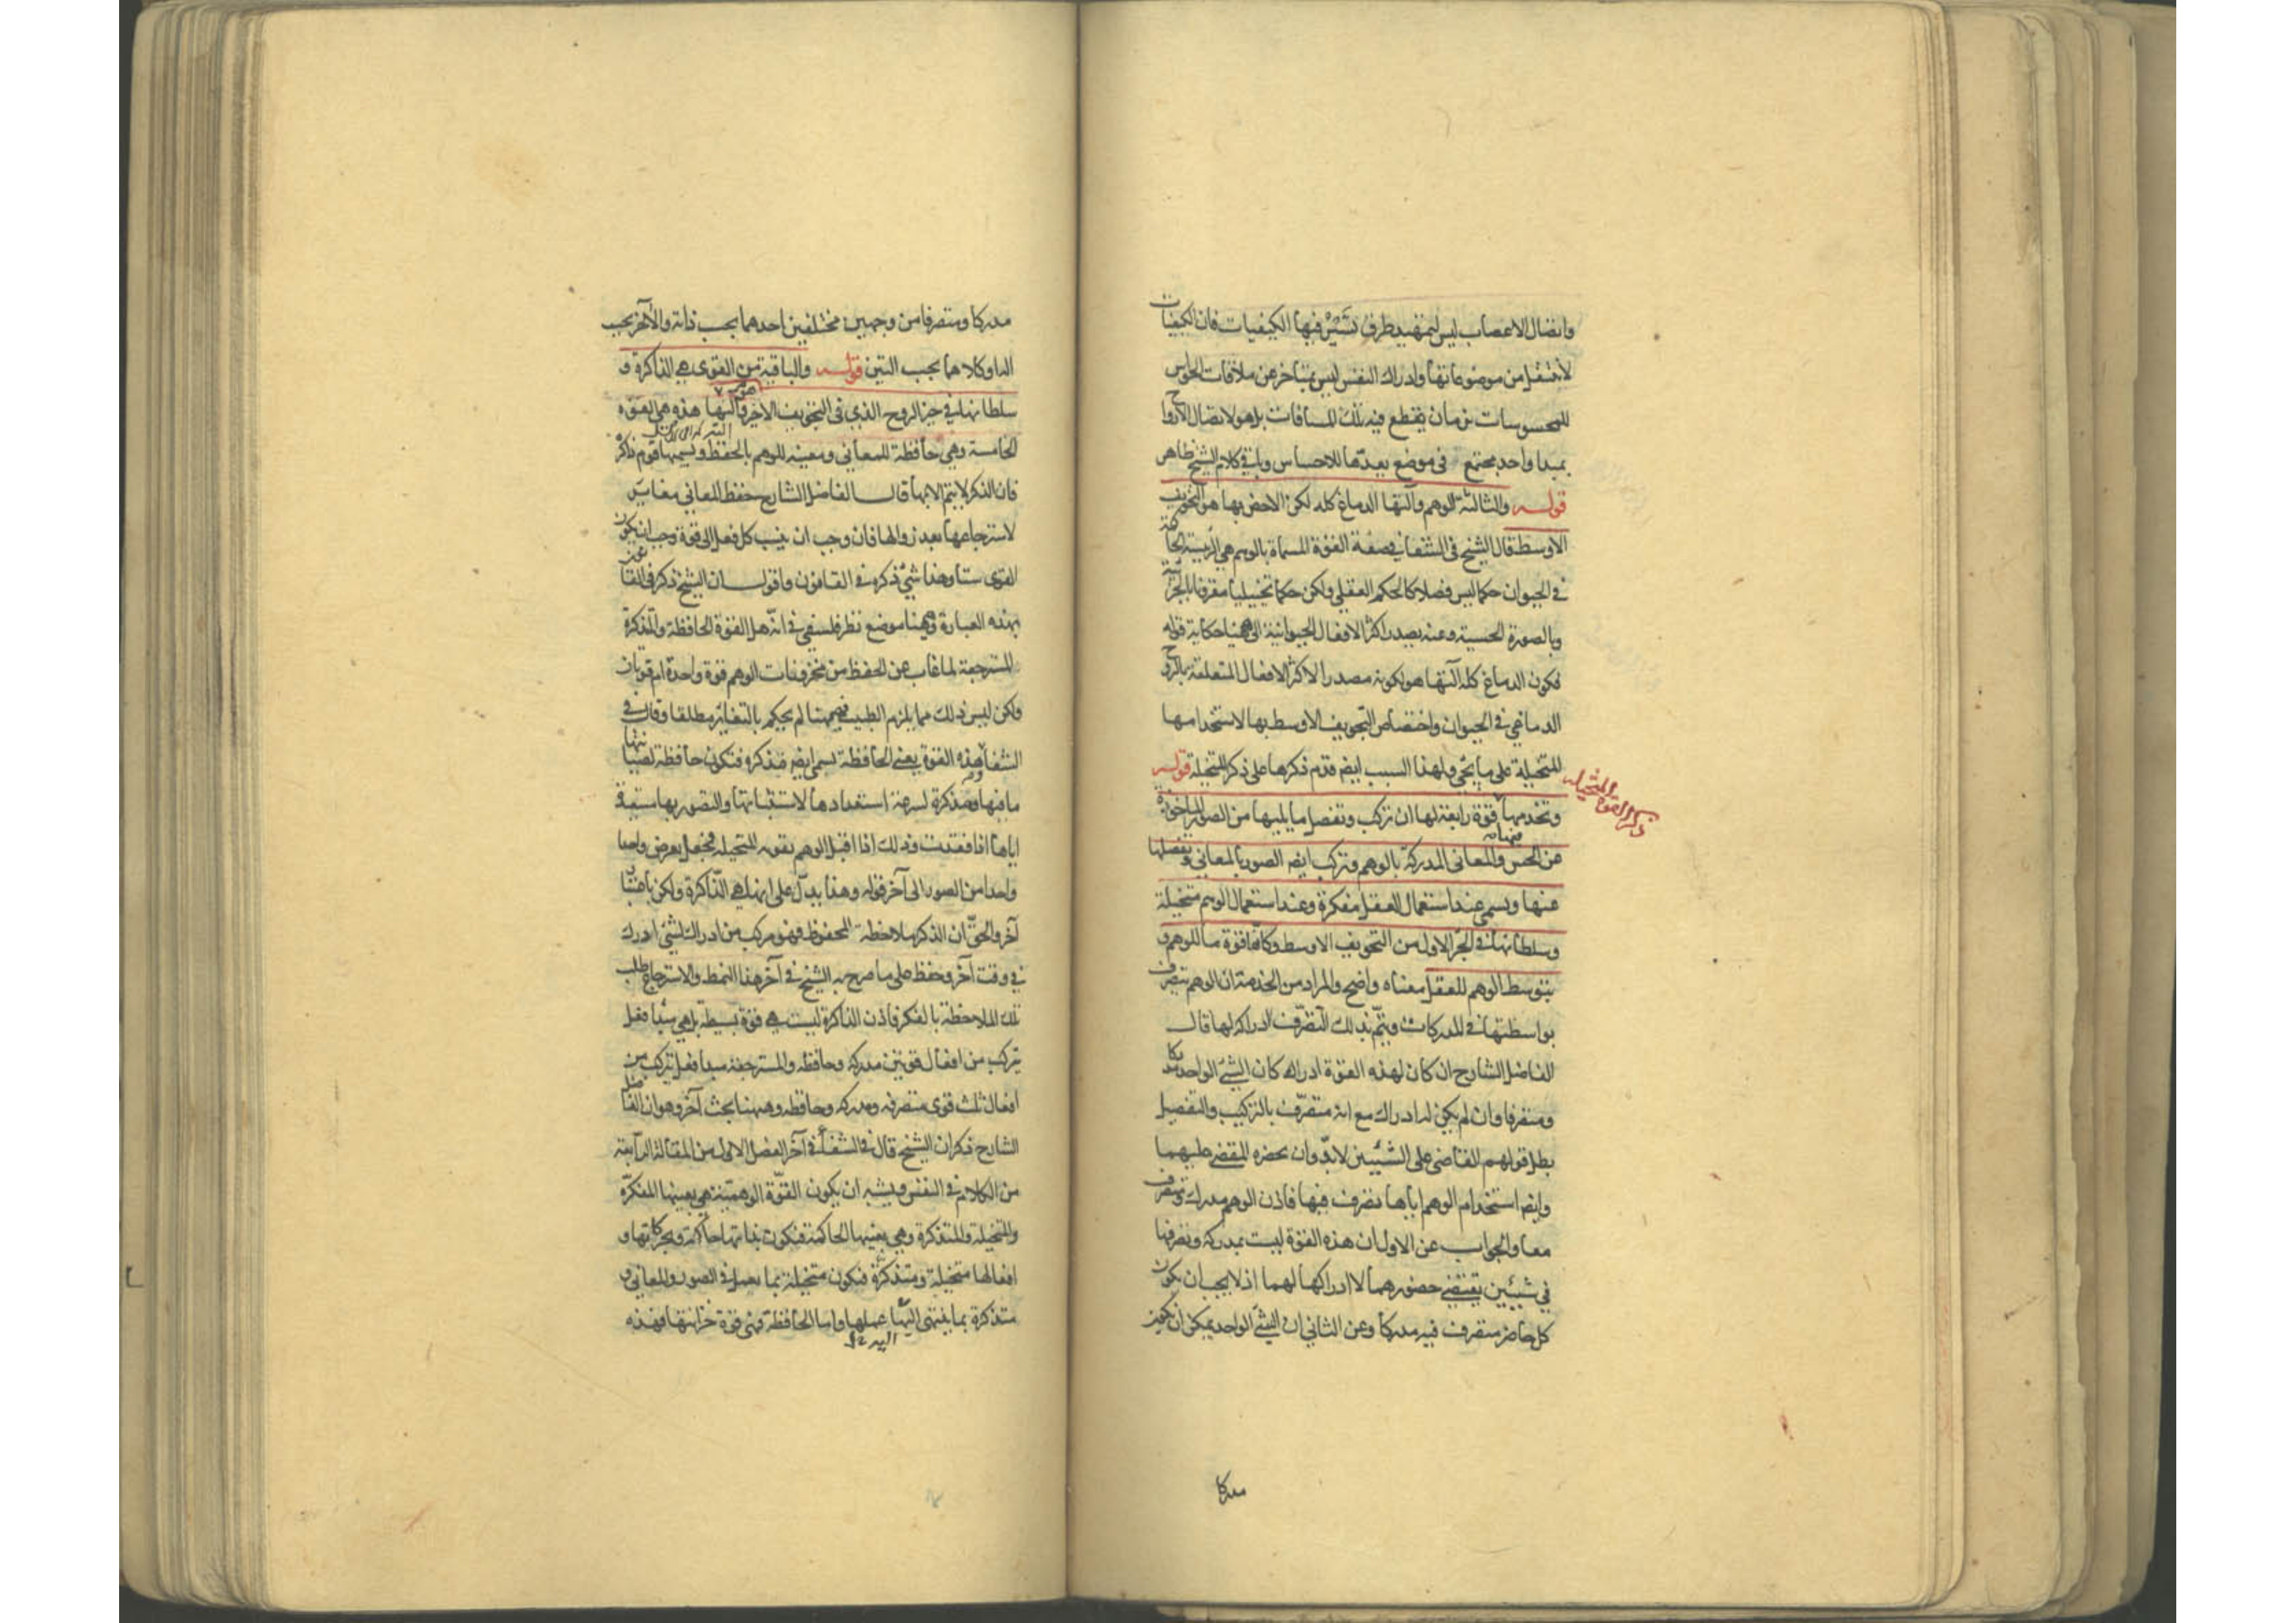 واتصال الاعصاب ليس لتمهيد طرق تسير فيها الكيفيات فان الكيفيات
لا تنتقل من موضوعاتها وادراك النفس ليس بمتأخر عن ملاقات الحواس
للمحسوسات بزمان يقطع فيه تلك المسافات بل هو لاتصال الارواح
بمبدا واحد مجتمع في موضع يعدها للاحساس وباقي كلام الشيخ ظاهر
قوله والثالثة الوهم وآلتها الدماغ كله لكن الاخص بها هو التجويف
الاوسط قال الشيخ في الشفا في صفة القوة المسماة بالوهم هي الرئيسة الحاكمة
في الحيوان حكما ليس فصلا كالحكم العقلي ولكن حكما تخييليا مقرونا بالجزئية
وبالصورة الحسية وعنه يصدر اكثر الافعال الحيوانية الى ههنا حكاية قوله
فكون الدماغ كله آلتها هو لكونه مصدرا لاكثر الافعال المتعلقة بالروح
الدماغي في الحيوان واختصاص التجويف الاوسط بها لاستخدامها
للمتخيلة على ما يجئ ولهذا السبب ايضا قدم ذكرها على ذكر المتخيلة قوله
ذكر القوة المتخيلة
وتخدمها قوة رابعة لها ان تركب وتفصل ما يليها من الصور الماخوذة
عن الحس والمعاني المدركة بالوهم وتركب ايضا الصور بالمعاني وتفصلها
عنها وتسمى عند استعمال العقل مفكرة وعند استعمال الوهم متخيلة
وسلطانها في الجزء الاول من التجويف الاوسط وكأنها قوة ما للوهم و
بتوسط الوهم للعقل معناه واضح والمراد من الخدمة ان الوهم يتصرف
بواسطتها في المدركات ويتم بذلك التصرف ادراكه لها قال
الفاضل الشارح ان كان لهذه القوة ادراك كان الشئ الواحد مدركا
ومتصرفا وان لم يكن له ادراك مع انه متصرف بالتركيب والتفصيل
بطل قولهم القاضي على الشيئين لا بد وان يحضره المقضي عليهما
وايضا استخدام الوهم اياها تصرف فيها فاذن الوهم مدرك ومتصرف
معا والجواب عن الاول ان هذه القوة ليست بمدركه وتصرفها
في شيئين يقتضي حضورهما لا ادراكها لهما اذ لا يجب ان يكون
كل حاضر متصرف فيه مدركا وعن الثاني ان الشئ الواحد يمكن ان يكون
مدركا
مدركا ومتصرفا من وجهين مختلفين احدهما بحسب ذاته والآخر بحسب
آلة او كلاهما بحسب آلتين قوله والباقية من القوى هي الذاكرة و
سلطانها في حيز الروح الذي في التجويف الاخير وآلتها هذه هي القوة
الخامسة وهي حافظة للمعاني ومعينه للوهم بالحفظ ويسميها قوم ذاكرة
فان الذكر لا يتم الا بها قال الفاضل الشارح حفظ المعاني مغاير
لاسترجاعها بعد زوالها فان وجب ان ينسب كل فعل الى قوة وجب ان يكون
القوى ستا وهذا شئ ذكره في القانون واقول ان الشيخ ذكر في القانون
بهذه العبارة وههنا موضع نظر فلسفي في انه هل القوة الحافظة والمتذكرة
المسترجعة لما غاب عن الحفظ من مخزونات الوهم قوة واحدة ام قوتان
ولكن ليس ذلك مما يلزم الطبيب فههنا لم يحكم بالتغاير مطلقا وقال في
الشفا هذه القوة يعني الحافظة تسمى ايضا متذكرة فتكون حافظة لصيانتها
ما فيها ومتذكرة لسرعة استعدادها لاستثباتها والتصور بها مستعيدة
اياها اذا فقدت وذلك اذا اقبل الوهم بقوته المتخيلة فجعل يعرض واحدا
واحدا من الصور الى آخر قوله وهذا يدل على انها هي الذاكرة ولكن باعتبار
آخر والحق ان الذكر ملاحظة المحفوظ فهو مركب من ادراك لشئ ادرك
في وقت آخر وحفظ على ما صرح به الشيخ في آخر هذا النمط والاسترجاع طلب
تلك الملاحظة بالفكر فاذن الذاكرة ليست هي قوة بسيطة بل هي مبدأ فعل
يتركب من افعال قوتين مدركه وحافظه والمسترجعة مبدأ فعل يتركب من
افعال ثلث قوى متصرفه ومدركه وحافظه وههنا بحث آخر وهو ان الفاضل
الشارح ذكر ان الشيخ قال في الشفا في آخر الفصل الاول من المقالة الرابعة
من الكلام في النفس ويشبه ان يكون القوة الوهمية هي بعينها المفكرة
والمتخيلة والمتذكرة وهي بعينها الحاكمة فتكون بذاتها حاكمة وبحركاتها و
افعالها متخيلة ومتذكرة فتكون متخيلة بما تعمل في الصور والمعاني و
متذكرة بما ينتهي اليها عملها واما الحافظة فهي قوة خزانتها فهذه